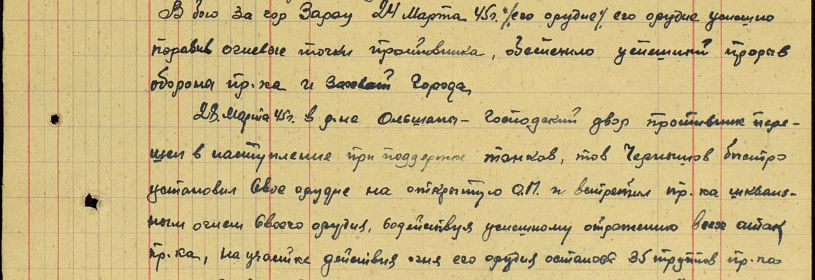 В бою за гор Зарау 24 Марта 45г. /его орудие/ его орудие успешно
поразив огневые точки противника, обеспечило успешный прорыв
оборона пр-ка и Захват Города.
28 Марта 45г. в р-не Ольшаны - Господский двор противник пере-
шел в наступление при поддержке танков, тов Чернышов быстро
установил Свое орудие на открытую О.П. и встретил пр-ка шкваль-
ным огнем Своего орудия, содействуя успешному отражению всех атак
пр-ка, на участке действия огня его орудия осталось 35 трупов пр-ка